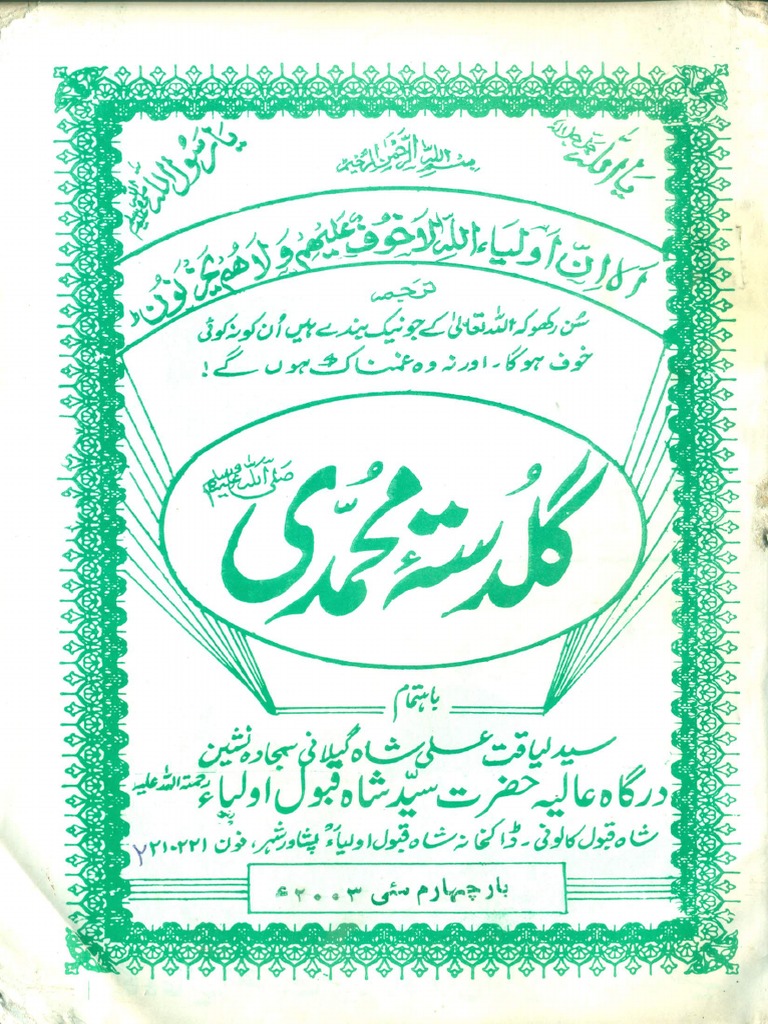 یا اللہ جل جلالہ
بسم اللہ الرحمٰن الرحیم
یا رسول اللہ صلی اللہ علیہ وسلم
اَلَا اِنَّ اَولِیَاءَ اللہِ لَا خَوفٌ عَلَیہِم وَلَا ھُم یَحزَنُونَ ط
ترجمہ
سُن رکھو کہ اللہ تعالیٰ کے جو نیک بندے ہیں اُن کو نہ کوئی
خوف ہو گا۔ اور نہ وہ غمناک ہوں گے!
گلدستۂ محمدی صلی اللہ علیہ وسلم
باہتمام
سید لیاقت علی شاہ گیلانی سجادہ نشین
درگاہ عالیہ حضرت سیّد شاہ قبول اولیاءؒ رحمتہ اللہ علیہ
شاہ قبول کالونی۔ ڈاکخانہ شاہ قبول اولیاءؒ پشاور شہر، فون ۲۲۱۰۲۲۱
بار چہارم مئی ۲۰۰۳ء